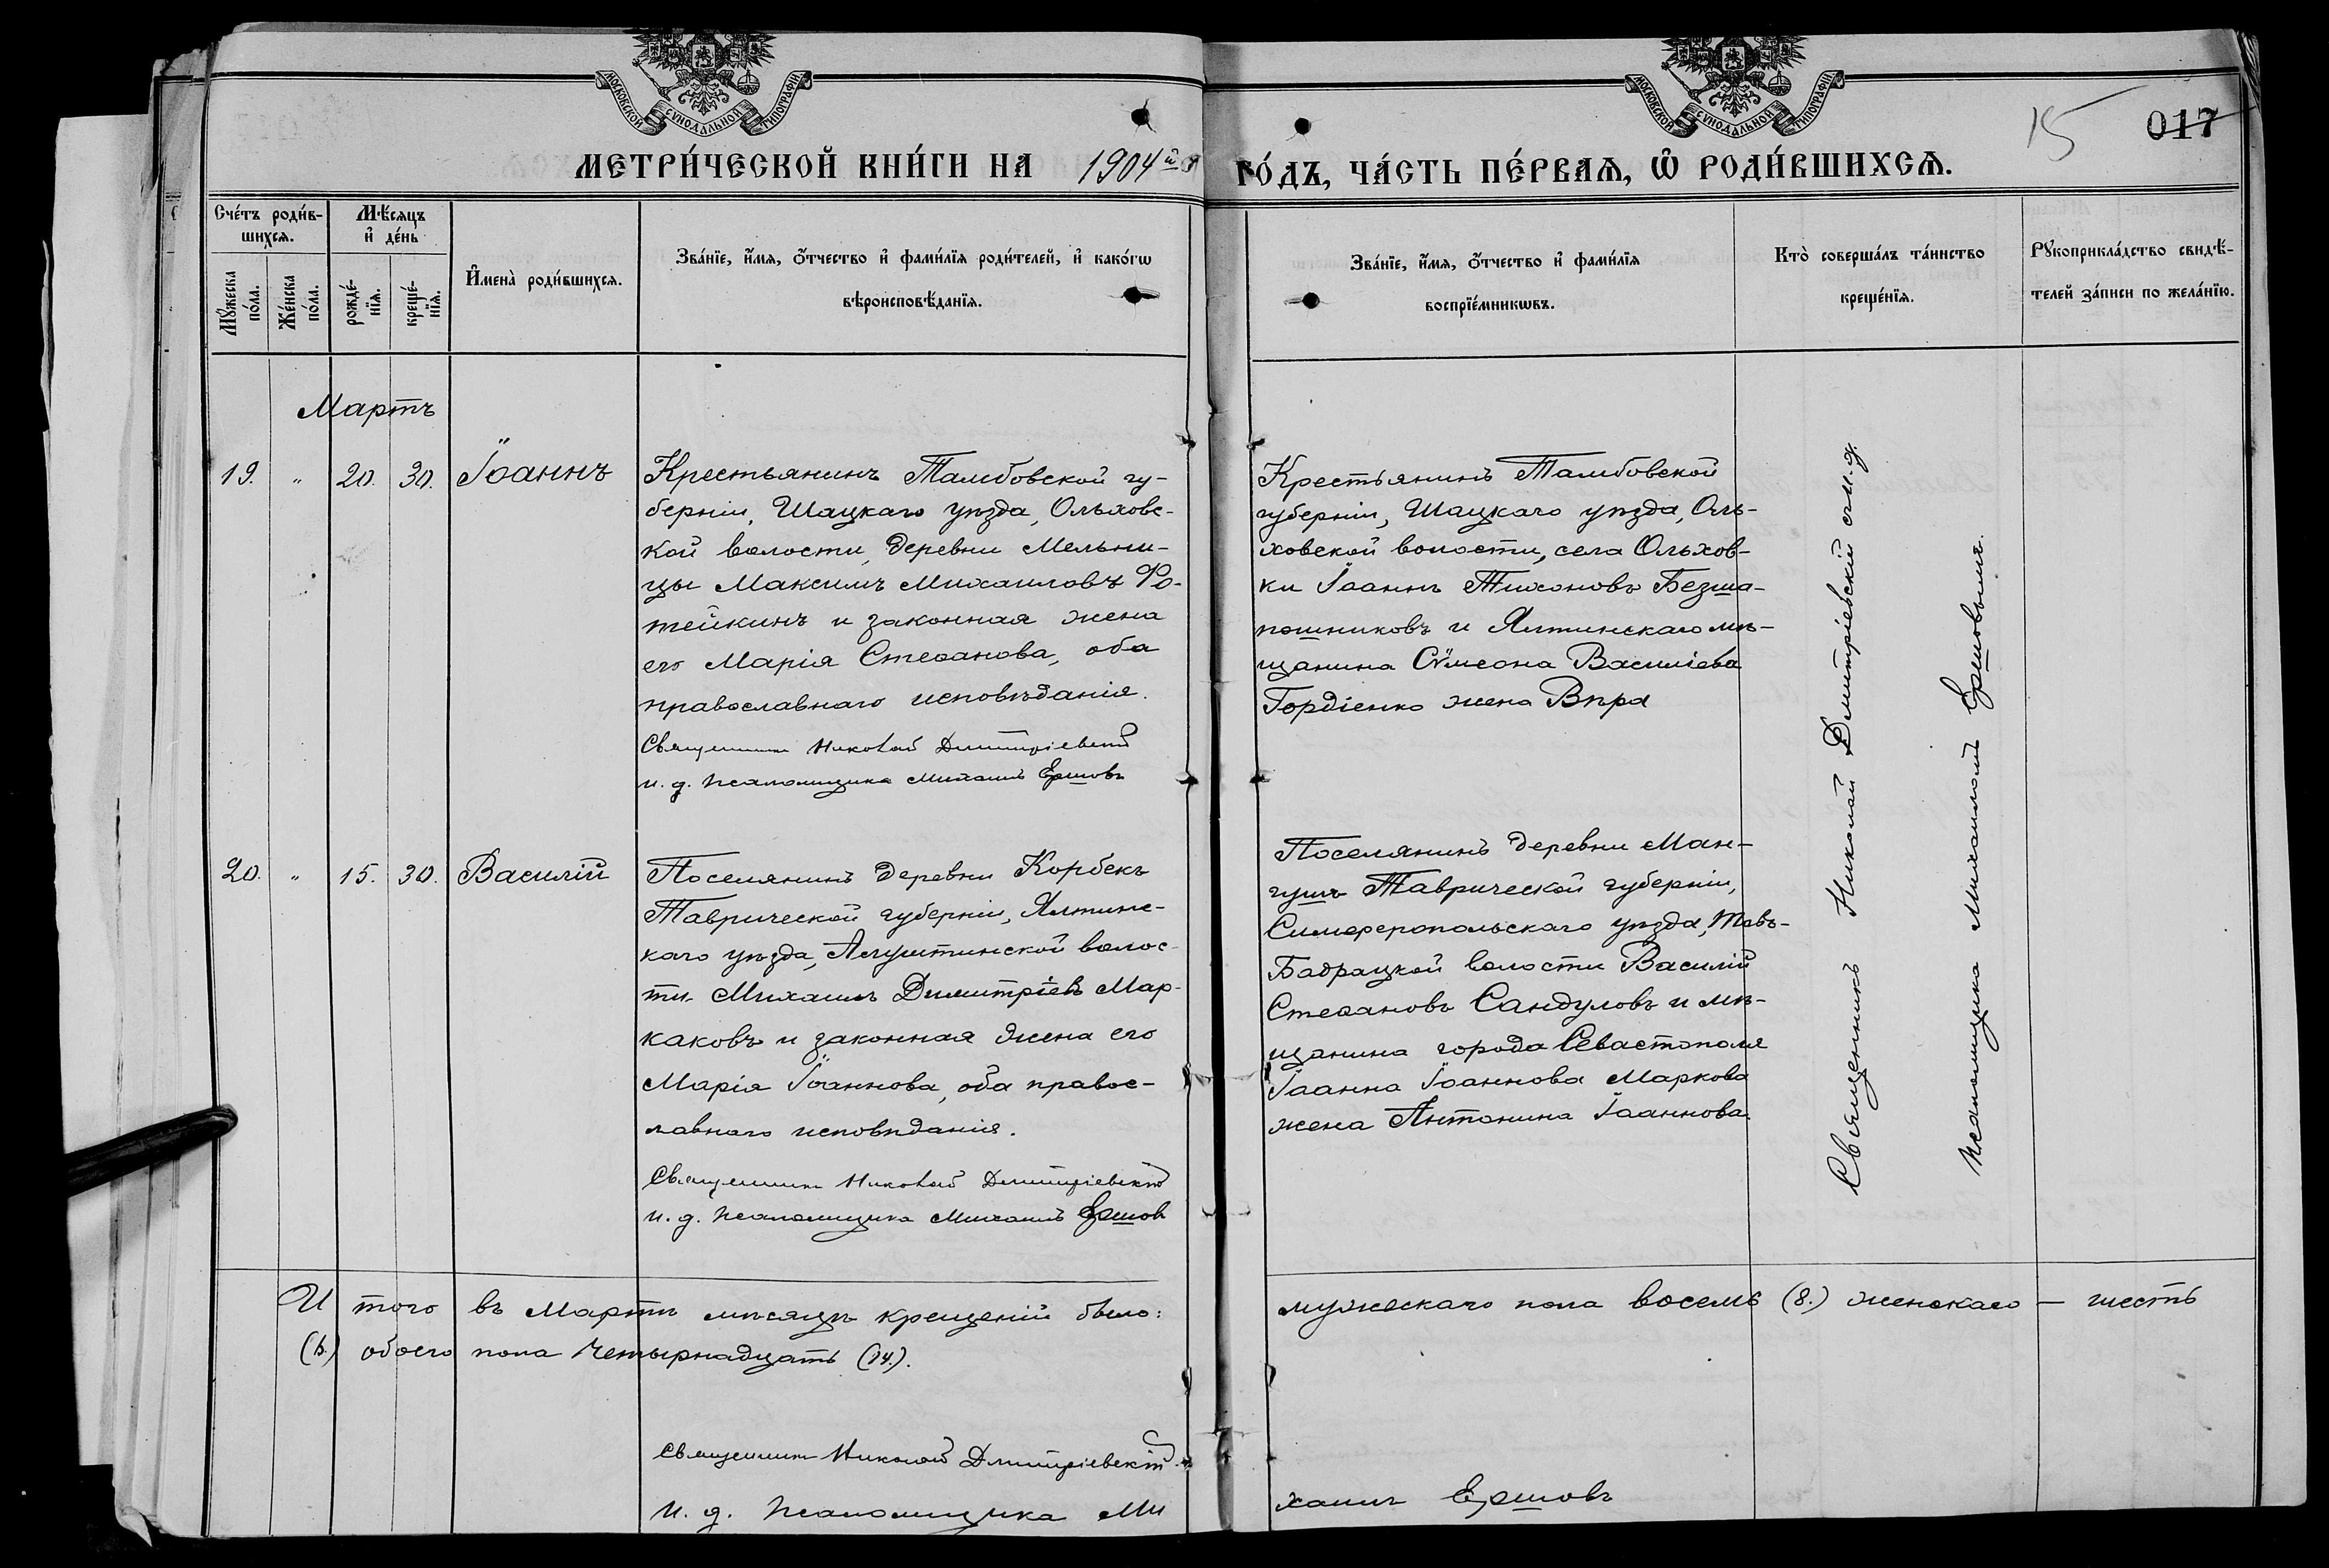 МОСКОВСКОЙ СУНОДАЛЬНОЙ ТИПОГРАФІИ
МОСКОВСКОЙ СУНОДАЛЬНОЙ ТИПОГРАФІИ
15 017
МЕТРИ́ЧЕСКОЙ КНИ́ГИ НА 1904й
ГО́ДЪ, ЧА́СТЬ ПЕ́РВАѦ, Ѽ РОДИ́ВШИХСѦ.
Сче́тъ роди́в-
шихсѧ.
Мꙋ́жеска
по́ла.
Же́нска
по́ла.
Мѣ́сѧцъ
и҆ де́нь
рожде́-
нїѧ.
креще́-
нїѧ.
И҆мена̀ роди́вшихсѧ.
Зва́нїе, и҆́мѧ, ѻ҆́тчество и҆ фами́лїѧ роди́телей, и҆ како́гѡ
вѣроисповѣ́данїѧ.
Зва́нїе, и҆́мѧ, ѻ҆́тчество и҆ фами́лїѧ
воспрїе́мникѡвъ.
Кто̀ соверша́лъ та́инство
креще́нїѧ.
Рꙋкоприкла́дство свидѣ́-
телей за́писи по жела́нїю.
Мартъ
19. „ 20. 30. Іоаннъ
Крестьянинъ Тамбовской гу-
берніи, Шацкаго уѣзда, Ольховс-
кой волости, деревни Мельни-
цы Максимъ Михаиловъ Фо-
тейкинъ и законная жена
его Марія Стефанова, оба
православнаго исповѣданія.
Священникъ Николай Дмитріевскій
и. д. псаломщика Михаилъ Ершовъ
Крестьянинъ Тамбовской
губерніи, Шацкаго уѣзда, Оль-
ховской волости, села Ольхов-
ки Іоаннъ Тихоновъ Безша-
пошниковъ и Ялтинскаго мѣ-
щанина Сѵмеона Василіева
Гордіенко жена Вѣра
Священникъ Николай Дмитріевскій съ и. д.
псаломщика Михаиломъ Ершовымъ.
20. „ 15. 30. Василій
Поселянинъ деревни Корбекъ
Таврической губерніи, Ялтинс-
каго уѣзда, Алуштинской волос-
ти Михаилъ Димитріевъ Мар-
каковъ и законная жена его
Марія Іоаннова, оба правос-
лавнаго исповѣданія.
Священникъ Николай Дмитріевскій
и. д. псаломщика Михаилъ Ершовъ
Поселянинъ деревни Ман-
гушъ Таврической губерніи,
Симферопольскаго уѣзда, Тавъ-
Бадрацкой волости Василій
Стефановъ Сандуловъ и мѣ-
щанина города Севастополя
Іоанна Іоаннова Маркова
жена Антонина Іоаннова
И того въ Мартѣ мѣсяцѣ крещеній было: мужескаго пола восемь (8.) женскаго — шесть
(6.) обоего пола четырнадцать (14.).
Священникъ Николай Дмитріевскій
и. д. псаломщика Михаилъ Ершовъ